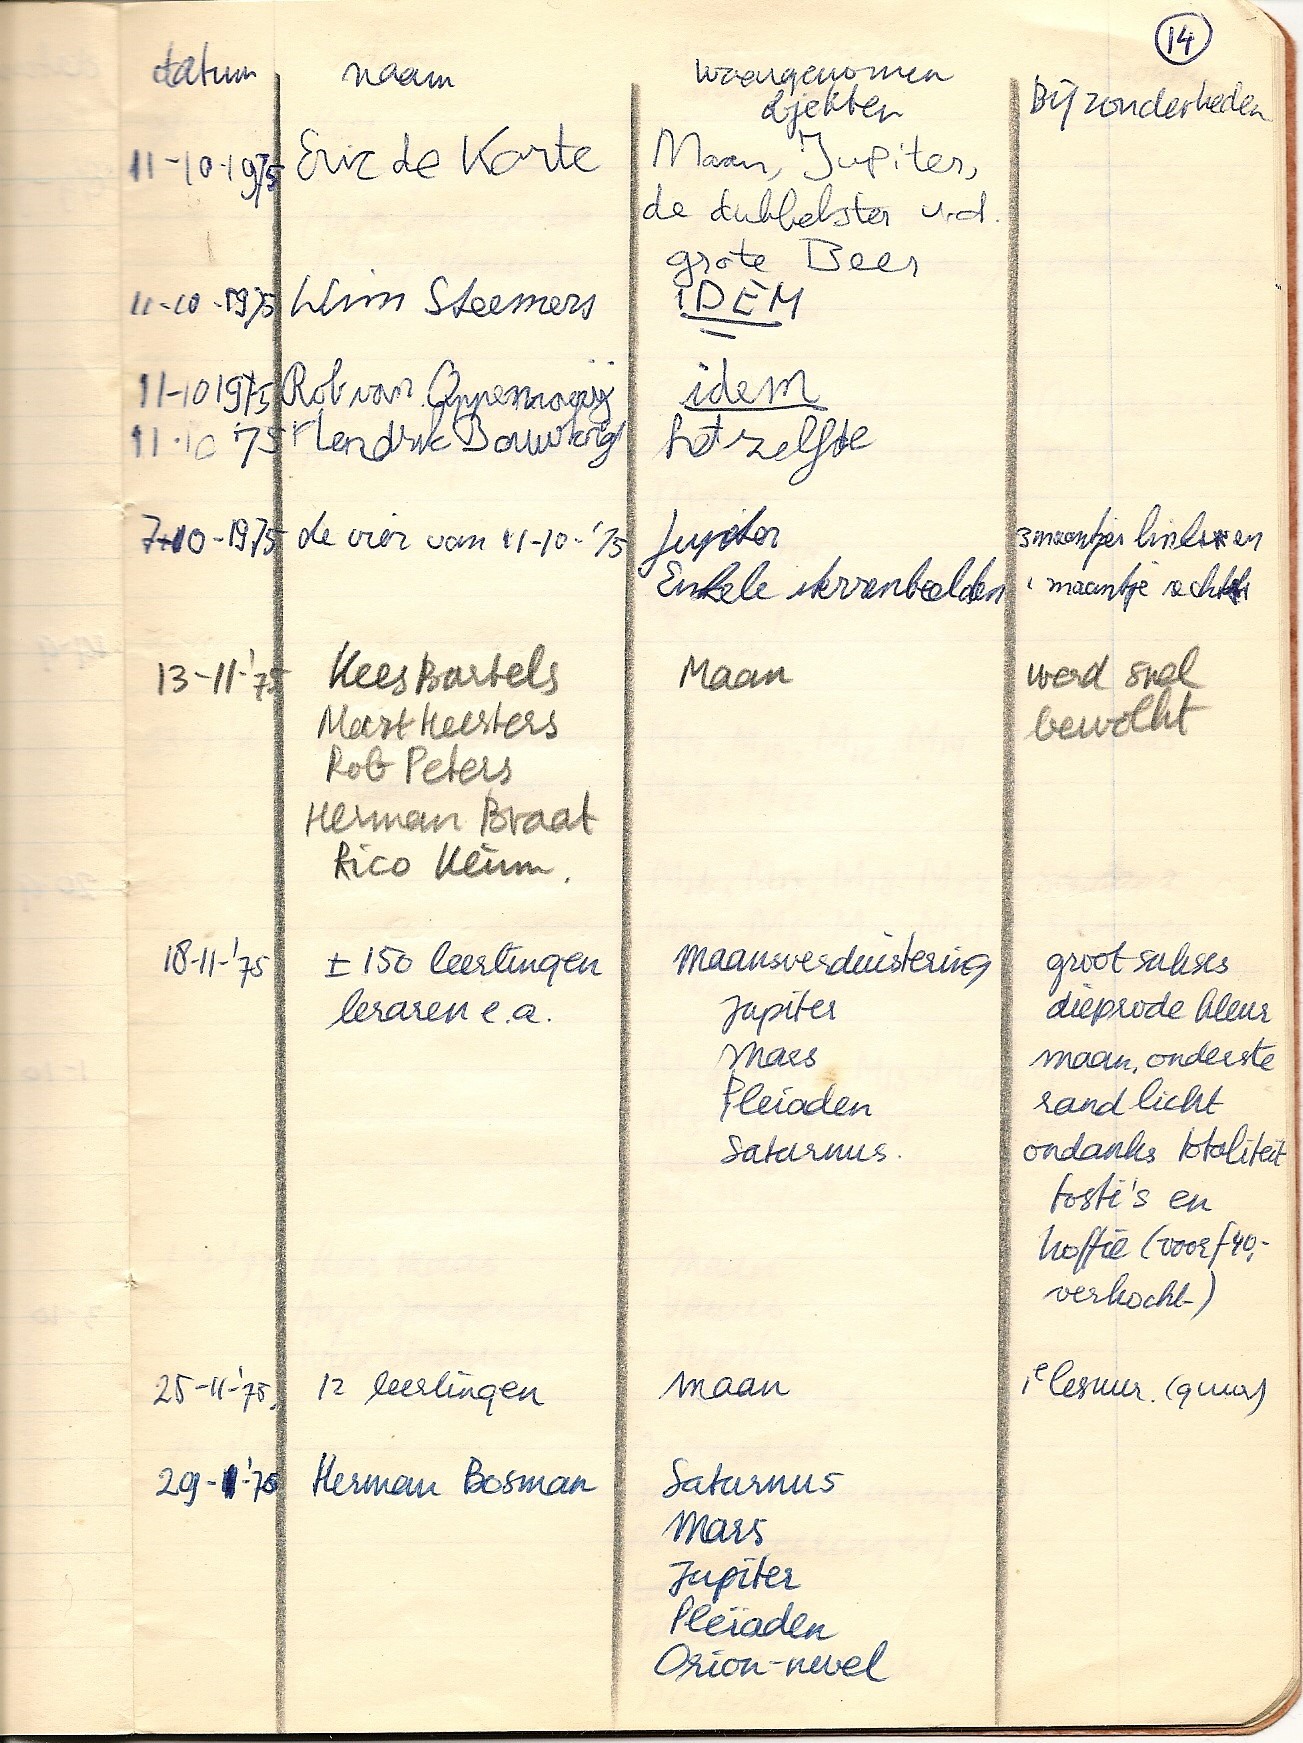 14
datum naam waargenomen objekten Bijzonderheden
11-10-1975 Eric de Korte Maan, Jupiter,
de dubbelster v.d.
grote Beer
11-10-1975 Wim Steemers IDEM
11-10 1975 Rob van idem
11-10 '75 Hendrik hetzelfde
7-10-1975 de vier van 11-10-'75 Jupiter 3 maantjes links en
Enkele sterrenbeelden 1 maantje rechts
13-11-'75 Kees Bartels Maan werd snel
Mart Heesters bewolkt
Rob Peters
Herman Braat
Rico Keum.
18-11-'75 ± 150 leerlingen Maansverduistering groot sukses
leraren e.a. Jupiter dieprode kleur
Mars maan, onderste
Pleiaden rand licht
Saturnus. ondanks totaliteit
tosti's en
koffie (voor f 40,-
verkocht)
25-11-'75, 12 leerlingen maan 1e lesuur. (9 uur)
29-1-'75 Herman Bosman Saturnus
Mars
Jupiter
Pleïaden
Orion-nevel